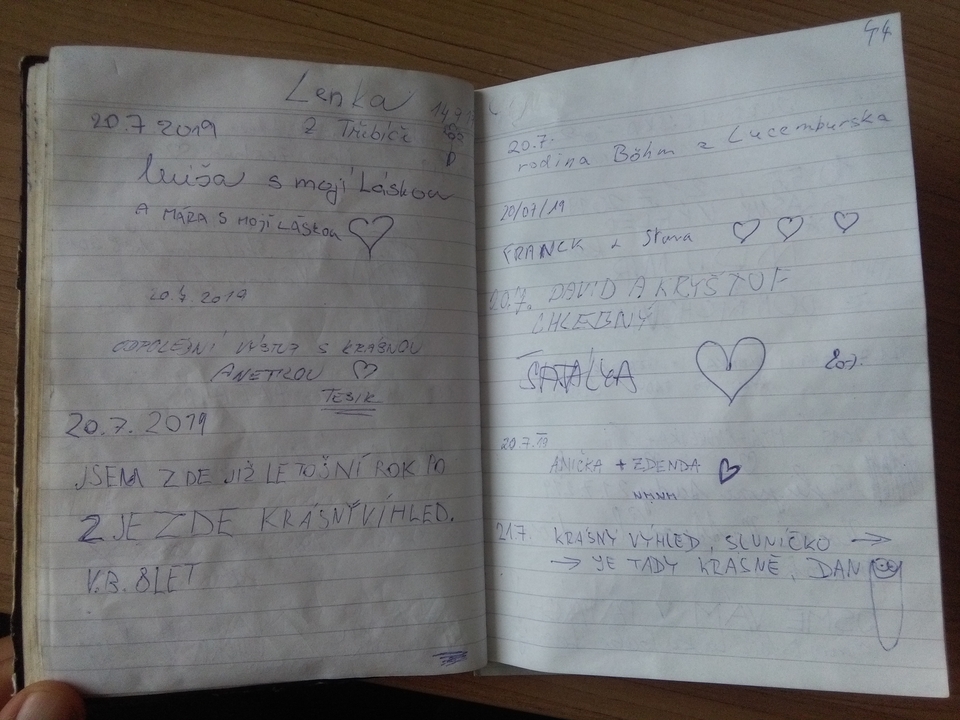 Lenka
z Třebíče
20.7 2019
Míša s mojí Láskou
A MÁRA S MOJÍ LÁSKOU
20.7 2019
ODPOLEJNÍ VÝSTUP S KRÁSNOU
ANETKOU
TESIK
20.7. 2019
JSEM ZDE JIŽ LETOŠNÍ ROK PO
2 JE ZDE KRÁSNÝ VÍHLED.
V.B. 8 LET
44
20.7.
rodina Böhm z Lucemburska
20/07/19
FRANCK &
20.7. DAVID A KRYŠTOF
CHLEBNÝ
20.7.
20.7.19
ANIČKA + ZDENDA
21.7. KRÁSNÝ VÝHLED, SLUNÍČKO →
→ JE TADY KRÁSNĚ, DAN